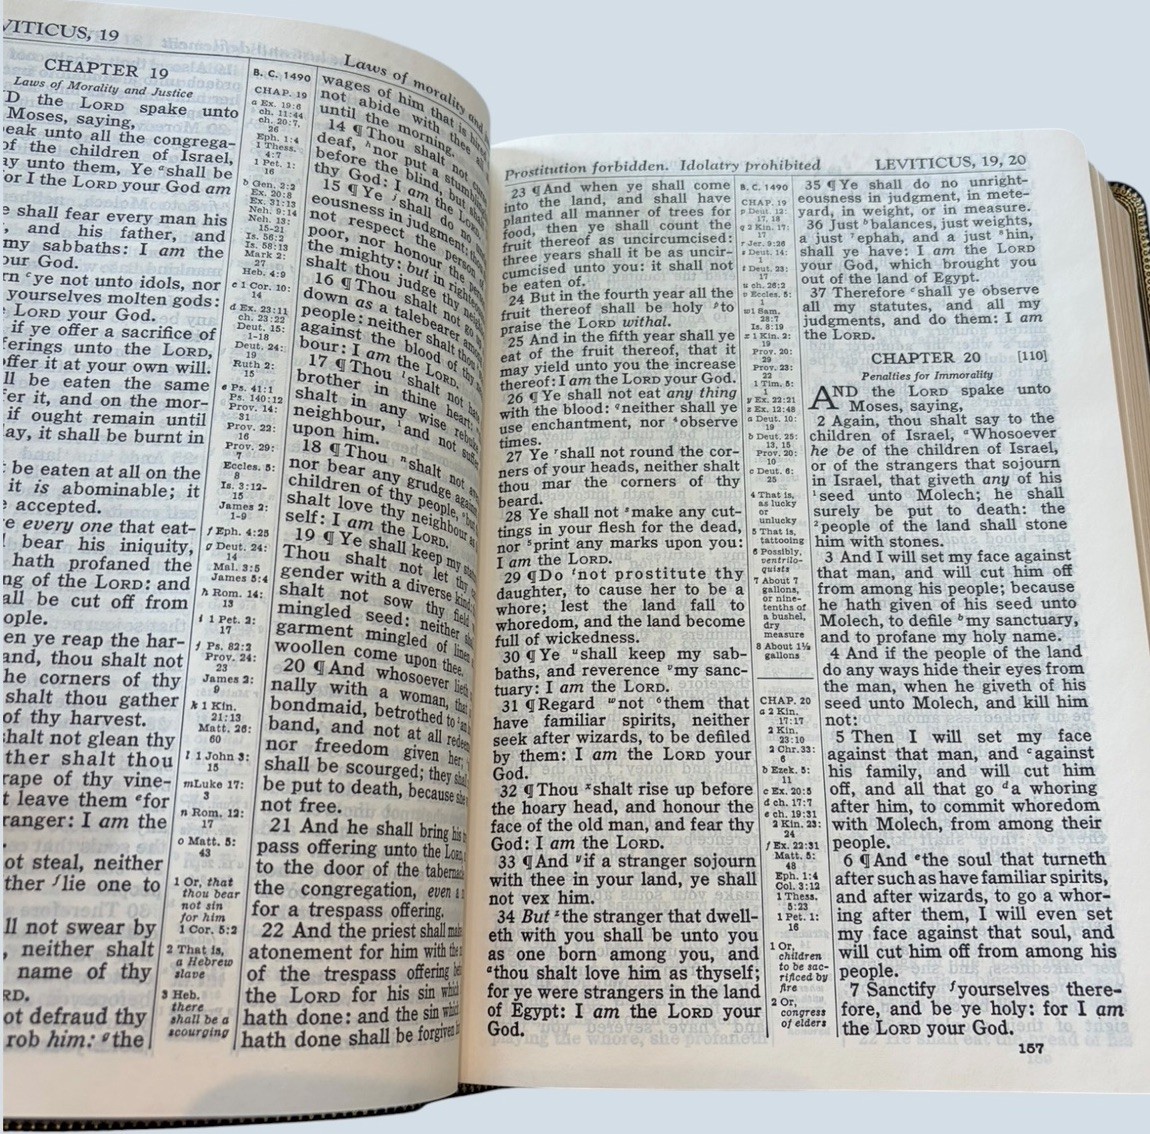 VITICUS, 19
CHAPTER 19
Laws of Morality and Justice
D the LORD spake unto
Moses, saying,
eak unto all the congrega-
of the children of Israel,
ay unto them, Ye ᵃshall be
or I the LORD your God am
e shall fear every man his
, and his father, and
my sabbaths: I am the
our God.
rn ᶜye not unto idols, nor
yourselves molten gods:
LORD your God.
if ye offer a sacrifice of
ferings unto the LORD,
offer it at your own will.
ll be eaten the same
fer it, and on the mor-
if ought remain until
ay, it shall be burnt in
be eaten at all on the
it is abominable; it
accepted.
e every one that eat-
bear his iniquity,
hath profaned the
ng of the LORD: and
all be cut off from
ople.
en ye reap the har-
and, thou shalt not
he corners of thy
shalt thou gather
of thy harvest.
halt not glean thy
ther shalt thou
rape of thy vine-
t leave them ᵉfor
ranger: I am the
ot steal, neither
ther ᶠlie one to
ll not swear by
, neither shalt
name of thy
RD.
ot defraud thy
rob him: ᵍthe
B. C. 1490
CHAP. 19
a Ex. 19:6
ch. 11:44
ch. 20:7,
26
Eph. 1:4
1 Thess.
4:7
1 Pet. 1:
16
b Gen. 2:2
Ex. 20:8
Ex. 31:13
Neh. 9:14
Neh. 13:
15-21
Is. 56:2
Is. 58:13
Mark 2:
27
Heb. 4:9
c 1 Cor. 10:
14
d Ex. 23:11
ch. 23:22
Deut. 15:
1-18
Deut. 24:
19
Ruth 2:
15
e Ps. 41:1
Ps. 140:12
Prov. 14:
31
Prov. 22:
16
Prov. 29:
7
Eccles. 5:
8
Is. 3:12-
15
James 2:
1-9
f Eph. 4:25
g Deut. 24:
14
Mal. 3:5
James 5:4
h Rom. 14:
13
i 1 Pet. 2:
17
j Ps. 82:2
Prov. 24:
23
James 2:
9
k 1 Kin.
21:13
Matt. 26:
60
l 1 John 3:
15
mLuke 17:
3
n Rom. 12:
17
o Matt. 5:
43
1 Or, that
thou bear
not sin
for him
1 Cor. 5:2
2 That is,
a Hebrew
slave
3 Heb.
there
shall be a
scourging
Laws of morality and
wages of him that is hired
not abide with thee all
until the morning.
14 ¶ Thou shalt not
deaf, ʰnor put a stumbling
before the blind, but shalt
thy God: I am the LORD.
15 ¶ Ye shall do no
eousness in judgment: thou
not respect the person
poor, nor honour the
the mighty: but in righteous
shalt thou judge thy neigh
16 ¶ Thou shalt not go
down as a talebearer among
people: neither shalt thou
against the blood of thy
bour: I am the LORD.
17 ¶ Thou ˡshalt not hate
brother in thine heart:
shalt in any wise rebuke
neighbour, ¹and not suffer
upon him.
18 ¶ Thou ⁿshalt not
nor bear any grudge against
children of thy people, ᵒbut
shalt love thy neighbour as
self: I am the LORD.
19 ¶ Ye shall keep my
Thou shalt not let thy
gender with a diverse kind:
shalt not sow thy field
mingled seed: neither
garment mingled of linen
woollen come upon thee.
20 ¶ And whosoever lieth
nally with a woman, that
bondmaid, betrothed to ²an
band, and not at all redeem
nor freedom given her;
shall be scourged; they shall
be put to death, because she
not free.
21 And he shall bring his
pass offering unto the LORD,
to the door of the tabernac
the congregation, even a
for a trespass offering.
22 And the priest shall make
atonement for him with the
of the trespass offering
the LORD for his sin which
hath done: and the sin which
hath done shall be forgiven
Prostitution forbidden. Idolatry prohibited
23 ¶ And when ye shall come
into the land, and shall have
planted all manner of trees for
food, then ye shall count the
fruit thereof as uncircumcised:
three years shall it be as uncir-
cumcised unto you: it shall not
be eaten of.
24 But in the fourth year all the
fruit thereof shall be holy ᵖto
praise the LORD withal.
25 And in the fifth year shall ye
eat of the fruit thereof, that it
may yield unto you the increase
thereof: I am the LORD your God.
26 ¶ Ye shall not eat any thing
with the blood: ᑫneither shall ye
use enchantment, nor ⁴observe
times.
27 Ye ʳshall not round the cor-
ners of your heads, neither shalt
thou mar the corners of thy
beard.
28 Ye shall not ˢmake any cut-
tings in your flesh for the dead,
nor ⁵print any marks upon you:
I am the LORD.
29 ¶ Do ᵗnot prostitute thy
daughter, to cause her to be a
whore; lest the land fall to
whoredom, and the land become
full of wickedness.
30 ¶ Ye ᵘshall keep my sab-
baths, and reverence ᵛmy sanc-
tuary: I am the LORD.
31 ¶ Regard ʷnot ⁶them that
have familiar spirits, neither
seek after wizards, to be defiled
by them: I am the LORD your
God.
32 ¶ Thou ˣshalt rise up before
the hoary head, and honour the
face of the old man, and fear thy
God: I am the LORD.
33 ¶ And ʸif a stranger sojourn
with thee in your land, ye shall
not vex him.
34 But ᶻthe stranger that dwell-
eth with you shall be unto you
as one born among you, and
ᵃthou shalt love him as thyself;
for ye were strangers in the land
of Egypt: I am the LORD your
God.
B. C. 1490
CHAP. 19
p Deut. 12:
17, 18
q 2 Kin. 17:
17
r Jer. 9:26
s Deut. 14:
1
t Deut. 23:
17
u ch. 26:2
v Eccles. 5:
1
w1 Sam.
28:7
Is. 8:19
x 1 Kin. 2:
19
Prov. 20:
29
Prov. 23:
22
1 Tim. 5:
1
y Ex. 22:21
z Ex. 12:48
a Deut. 10:
19
b Deut. 25:
13, 15
Prov. 20:
10
c Deut. 6:
25
4 That is,
as lucky
or
unlucky
5 That is,
tattooing
6 Possibly,
ventrilo-
quists
7 About 7
gallons,
or nine-
tenths of
a bushel,
dry
measure
8 About 1½
gallons
CHAP. 20
a 2 Kin.
17:17
2 Kin.
23:10
2 Chr. 33:
6
b Ezek. 5:
11
c Ex. 20:5
d ch. 17:7
e ch. 19:31
2 Kin. 23:
24
f Ex. 22:31
Matt. 5:
48
Eph. 1:4
Col. 3:12
1 Thess.
5:23
1 Pet. 1:
16
1 Or,
children
to be sac-
rificed by
fire
2 Or,
congress
of elders
LEVITICUS, 19, 20
35 ¶ Ye shall do no unright-
eousness in judgment, in mete-
yard, in weight, or in measure.
36 Just ᵇbalances, just weights,
a just ⁷ephah, and a just ⁸hin,
shall ye have: I am the LORD
your God, which brought you
out of the land of Egypt.
37 Therefore ᶜshall ye observe
all my statutes, and all my
judgments, and do them: I am
the LORD.
CHAPTER 20 [110]
Penalties for Immorality
AND the LORD spake unto
Moses, saying,
2 Again, thou shalt say to the
children of Israel, ᵃWhosoever
he be of the children of Israel,
or of the strangers that sojourn
in Israel, that giveth any of his
¹seed unto Molech; he shall
surely be put to death: the
²people of the land shall stone
him with stones.
3 And I will set my face against
that man, and will cut him off
from among his people; because
he hath given of his seed unto
Molech, to defile ᵇmy sanctuary,
and to profane my holy name.
4 And if the people of the land
do any ways hide their eyes from
the man, when he giveth of his
seed unto Molech, and kill him
not:
5 Then I will set my face
against that man, and ᶜagainst
his family, and will cut him
off, and all that go ᵈa whoring
after him, to commit whoredom
with Molech, from among their
people.
6 ¶ And ᵉthe soul that turneth
after such as have familiar spirits,
and after wizards, to go a whor-
ing after them, I will even set
my face against that soul, and
will cut him off from among his
people.
7 Sanctify ᶠyourselves there-
fore, and be ye holy: for I am
the LORD your God.
157